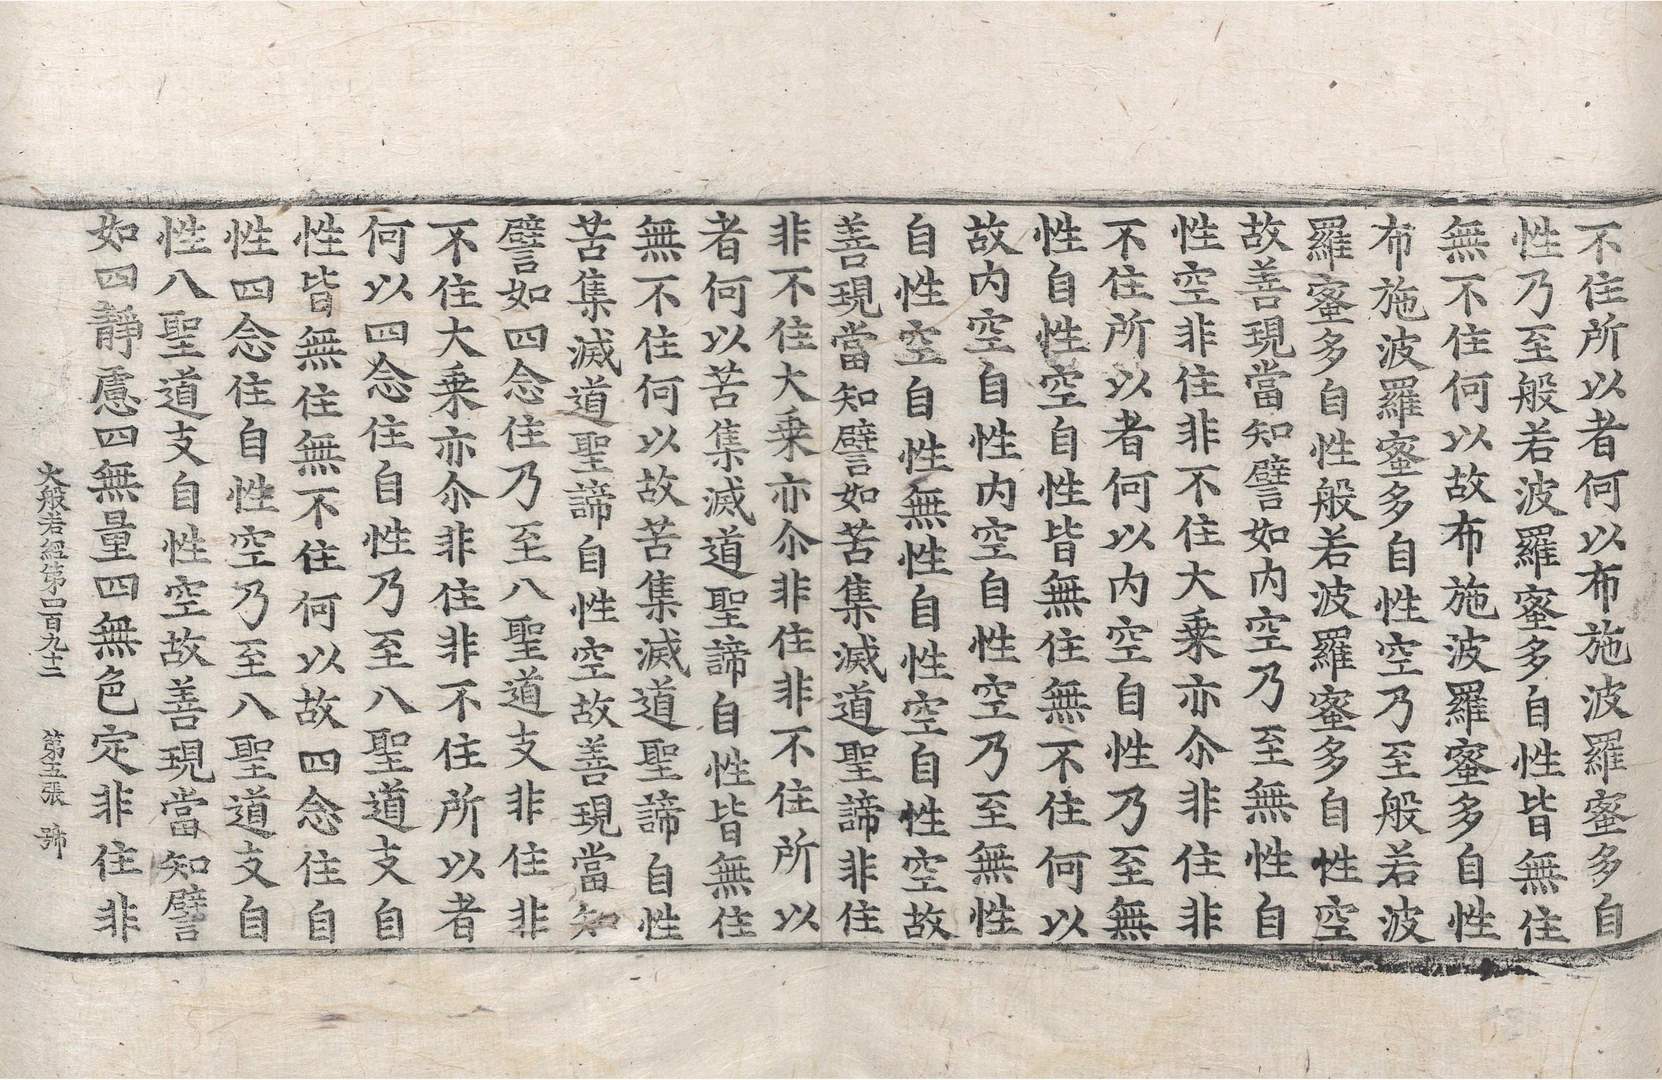 不住所以者何以布施波羅蜜多自
性乃至般若波羅蜜多自性皆無住
無不住何以故布施波羅蜜多自性
布施波羅蜜多自性空乃至般若波
羅蜜多自性般若波羅蜜多自性空
故善現當知譬如内空乃至無性自
性空非住非不住大乗亦尒非住非
不住所以者何以内空自性乃至無
性自性空自性皆無住無不住何以
故内空自性内空自性空乃至無性
自性空自性無性自性空自性空故
善現當知譬如苦集滅道聖諦非住
非不住大乗亦尒非住非不住所以
者何以苦集滅道聖諦自性皆無住
無不住何以故苦集滅道聖諦自性
苦集滅道聖諦自性空故善現當知
譬如四念住乃至八聖道支非住非
不住大乗亦尒非住非不住所以者
何以四念住自性乃至八聖道支自
性皆無住無不住何以故四念住自
性四念住自性空乃至八聖道支自
性八聖道支自性空故善現當知譬
如四靜慮四無量四無色定非住非
大般若經第四百九十二 第五張 號